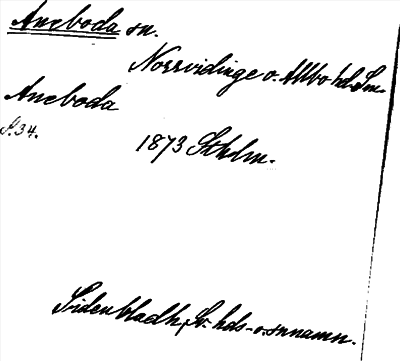 Aneboda sn.
Norrvidinge o. Allbo hd. Sm.
Aneboda
S. 34.
1873 Sthlm.
Sidenbladh, Sv. hds- o. snnamn.